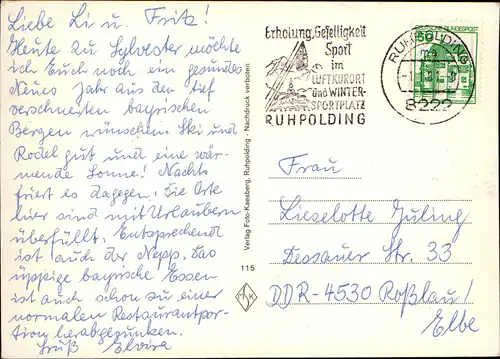 Liebe Li u. Fritz!
Heute zu Sylvester möchte
ich Euch noch ein gesundes
Neues Jahr aus den tief
verschneiten bayrischen
Bergen wünschen. Ski und
Rodel gut und eine wär-
mende Sonne! Nachts
friert es dagegen. Die Orte
hier sind mit Urlaubern
überfüllt. Entsprechend
ist auch der Nepp. Das
üppige bayrische Essen
ist auch schon zu einer
normalen Restaurantpor-
tion herabgezunken.
Gruß Elvira
Verlag Foto-Kaesberg, Ruhpolding - Nachdruck verboten
115
Erholung, Geselligkeit
Sport
im
LUFTKURORT
und WINTER-
SPORTPLATZ
RUHPOLDING
RUHPOLDING
8222
50
DEUTSCHE BUNDESPOST
Frau
Lieselotte Guling
Dessauer Str. 33
DDR-4530 Roßlau/
Elbe